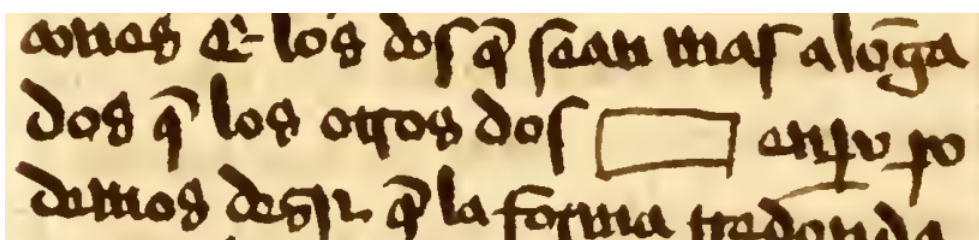 cones & los dos q̃ sean mas alõga
dos q̃ los otros dos enpo po
demos desir q̃ la forma rredonda